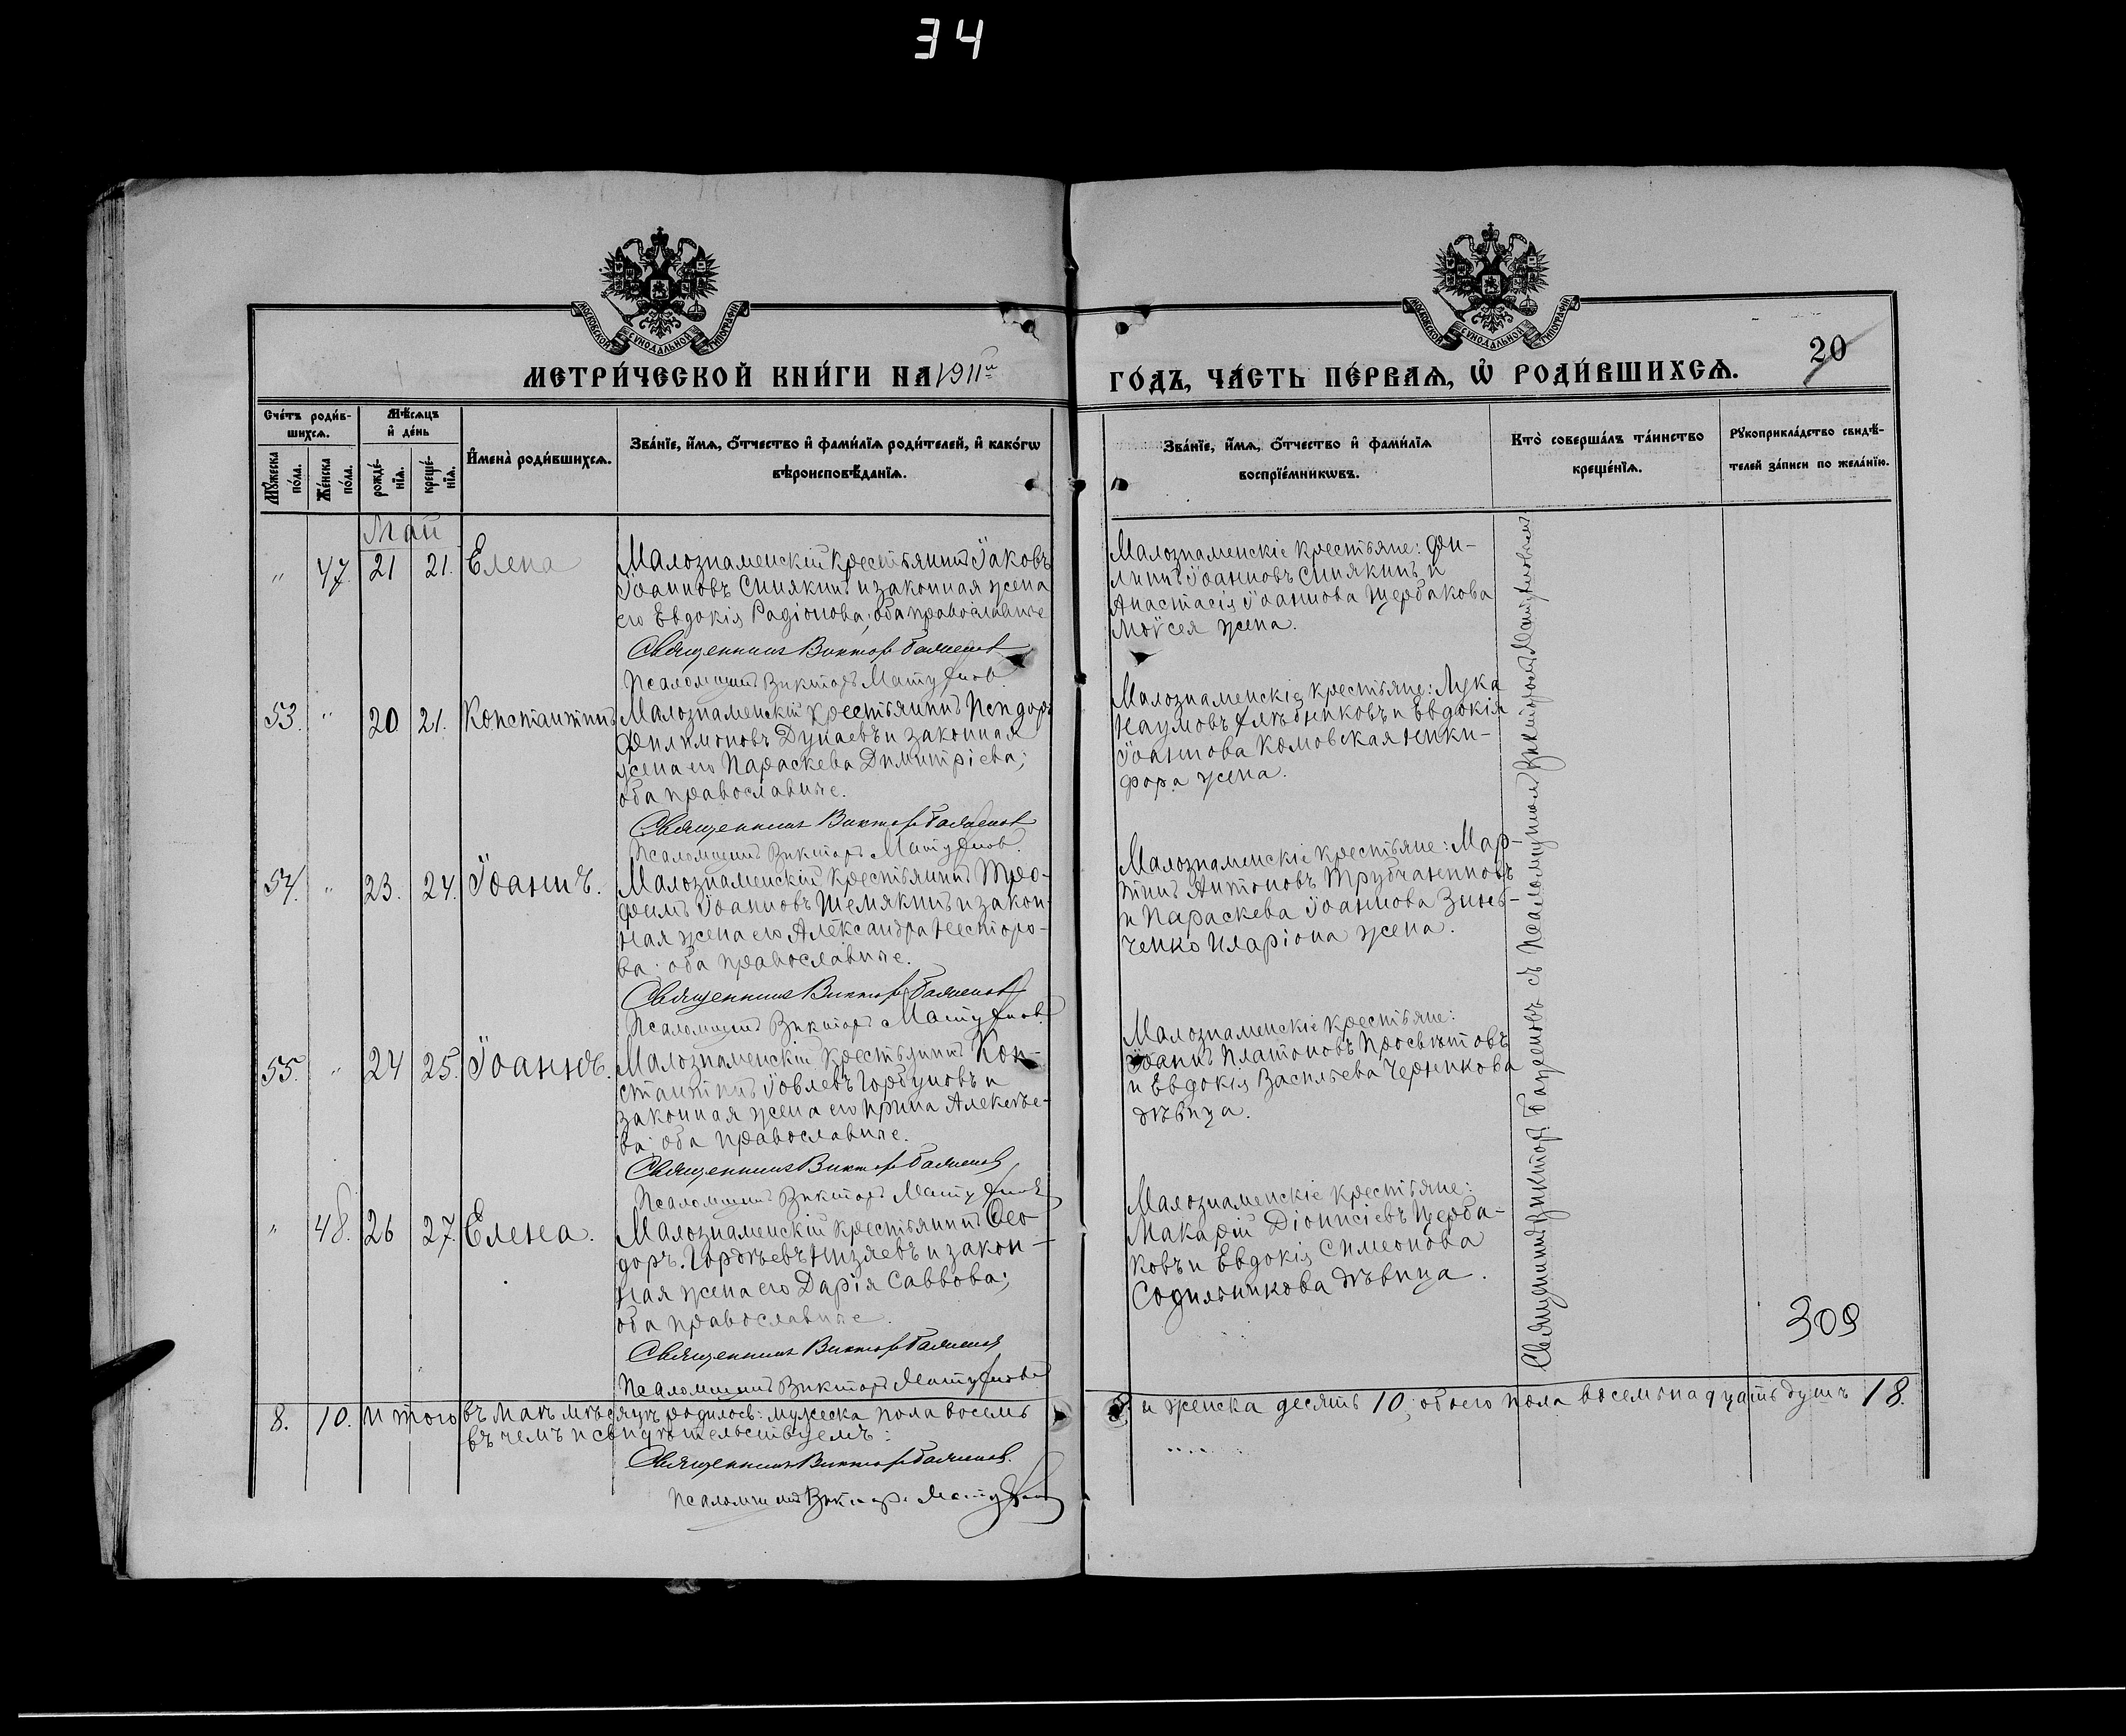 34
МОСКОВСКОЙ СУНОДАЛЬНОЙ ТИПОГРАФІИ
МОСКОВСКОЙ СУНОДАЛЬНОЙ ТИПОГРАФІИ
МЕТРИ́ЧЕСКОЙ КНИ́ГИ НА 1911й
ГО́ДЪ, ЧА́СТЬ ПЕ́РВАѦ, Ѡ҆ РОДИ́ВШИХСѦ.
20
Сче́тъ роди́в-
шихсѧ.
Мꙋ́жеска по́ла.
Же́нска по́ла.
Мѣ́сѧцъ
и҆ де́нь
рожде́-
нїѧ.
креще́-
нїѧ.
И҆мена̀ роди́вшихсѧ.
Зва́нїе, и҆́мѧ, ѻ҆́тчество и҆ фами́лїѧ роди́телей, и҆ како́гѡ
вѣроисповѣ́данїѧ.
Зва́нїе, и҆́мѧ, ѻ҆́тчество и҆ фами́лїѧ
воспрїе́мникѡвъ.
Кто̀ соверша́лъ та́инство
креще́нїѧ.
Рꙋкоприкла́дство свидѣ́-
телей за́писи по жела́нїю.
Май
" 47. 21 21. Елена
Малознаменскій крестьянинъ Іаковъ
Іоанновъ Синякинъ и законная жена
его Евдокія Радіонова; оба православные
Священникъ Викторъ
Псаломщикъ Викторъ
Малознаменскіе крестьяне: Фи-
липпъ Іоанновъ Синякинъ и
Анастасія Іоаннова Щербакова
Моѵсея жена.
53. " 20 21. Константинъ
Малознаменскій крестьянинъ
Филимоновъ Дунаевъ и законная
жена его Параскева Димитріева;
оба православные.
Священникъ Викторъ
Псаломщикъ Викторъ
Малознаменскіе крестьяне: Лука
Наумовъ и Евдокія
Іоаннова Комовская Ники-
фора жена.
54. " 23. 24. Іоаннъ.
Малознаменскій крестьянинъ Тро-
фимъ Іоанновъ Шемякинъ и закон-
ная жена его Александра Несторо-
ва; оба православные.
Священникъ Викторъ
Псаломщикъ Викторъ
Малознаменскіе крестьяне: Мар-
тинъ Антоновъ Трубчаниновъ
и Параскева Іоаннова Зинь-
ченко Иларіона жена.
55. " 24 25. Іоаннъ.
Малознаменскій крестьянинъ Кон-
стантинъ Іовлевъ Горбуновъ и
законная жена его Ирина Алексѣе-
ва; оба православные.
Священникъ Викторъ
Псаломщикъ Викторъ
Малознаменскіе крестьяне:
Іоаннъ Платоновъ Просвѣтовъ
и Евдокія Васильева Черникова
дѣвица.
" 48. 26 27. Елена.
Малознаменскій крестьянинъ Ѳео-
доръ Гордѣевъ Низяевъ и закон-
ная жена его Дарія Саввова;
оба православные.
Священникъ Викторъ
Псаломщикъ Викторъ
Малознаменскіе крестьяне:
Макарій Діонисіевъ Щерба-
ковъ и Евдокія Симеонова
дѣвица.
Священникъ Викторъ съ Псаломщикомъ Викторомъ
309
8. 10. Итого въ маѣ мѣсяцѣ родилось: мужеска пола восемь
8. и женска десять 10; обоего пола восемьнадцать душъ 18.
въ чемъ и свидѣтельствуемъ:
Священникъ Викторъ
Псаломщикъ Викторъ